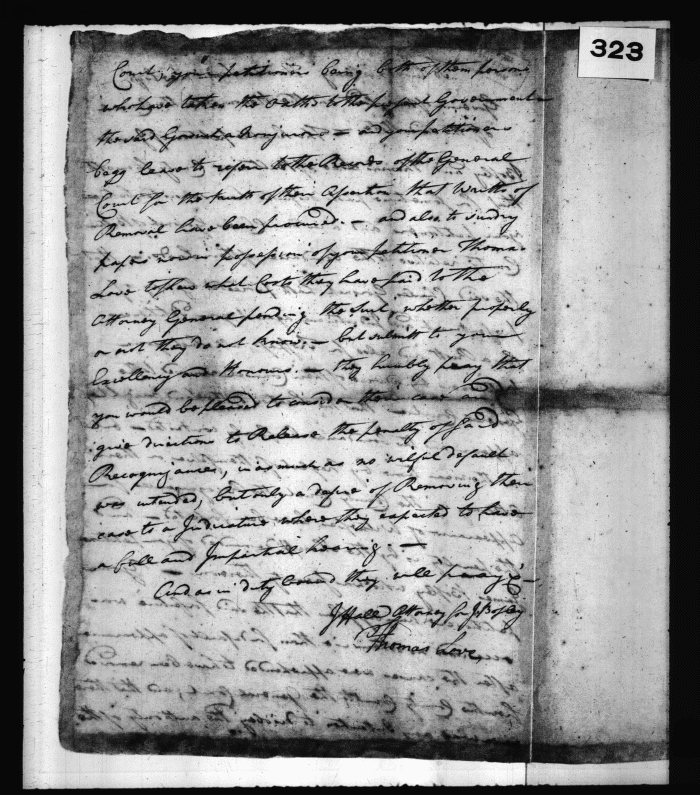 323
Court, your petitioners being both of them persons
who have taken the oaths to the present Government
the said Govish a Nonjuror — and your petitioners
begg leave to refer to the Records of the General
Court for the truth of their Assertion that Writts of
Removal have been procured. — and also to sundry
papers now in possession of your petitioner Thomas
Love to shew what Costs they have paid to the
Attorney General pending the suit, whether properly
or not they do not know. — but submitt to your
Excellency and Honours. — they humbly pray that
you would be pleased to consider their case and
give directions to Release the penalty of said
Recognizances, in as much as no wilful default
was intended, but only a desire of Removing their
case to a Judicature where they expected to have
a full and Impartial hearing —
And as in duty bound they will pray &c —
J Hall Attorney for J. Bosley
Thomas Love